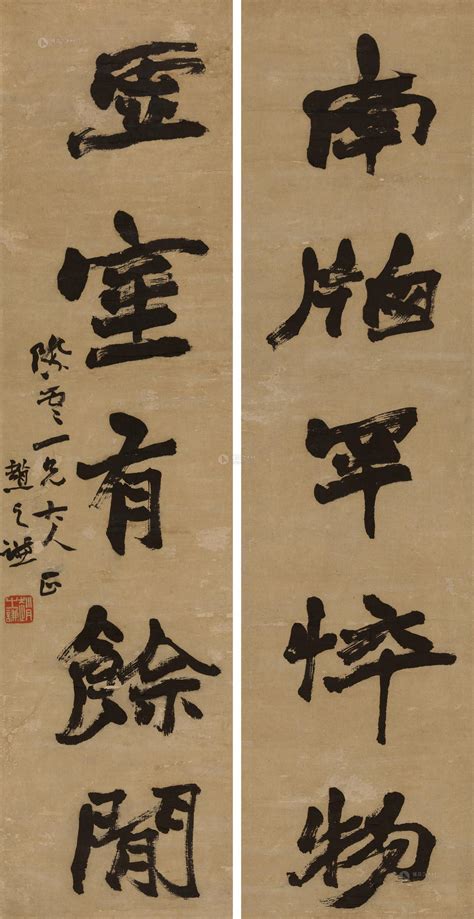 南牕罕悴物
虛室有餘閒
際雲一兄大人正
趙之謙